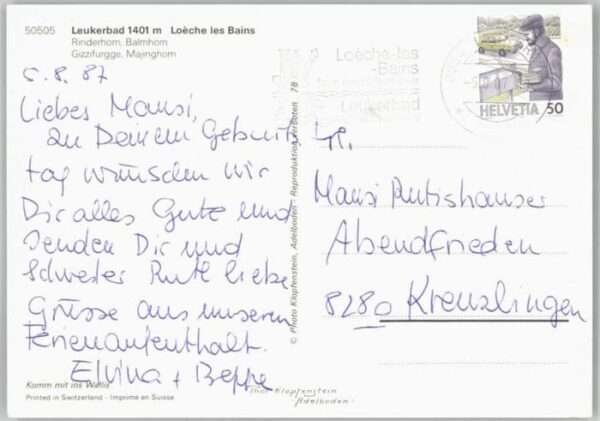 50505 Leukerbad 1401 m Loèche les Bains
Rinderhorn, Balmhorn
Gizzifurgge, Majinghorn
5.8.87
Liebes Mausi,
zu Deinem Geburts
tag wünschen wir
Dir alles Gute und
senden Dir und
Schwester Rute liebe
Grüsse aus unserem
Ferienaufenthalt.
Elvina + Beppe
Komm mit ins Wallis
Printed in Switzerland - Imprimé en Suisse
© Photo Klopfenstein, Adelboden - Reproduktion verboten 78
Photo Klopfenstein
Adelboden
Loèche-les
-Bains
Leukerbad
HELVETIA 50
Fr.
Mausi Rutishauser
Abendfrieden
8280 Kreuzlingen